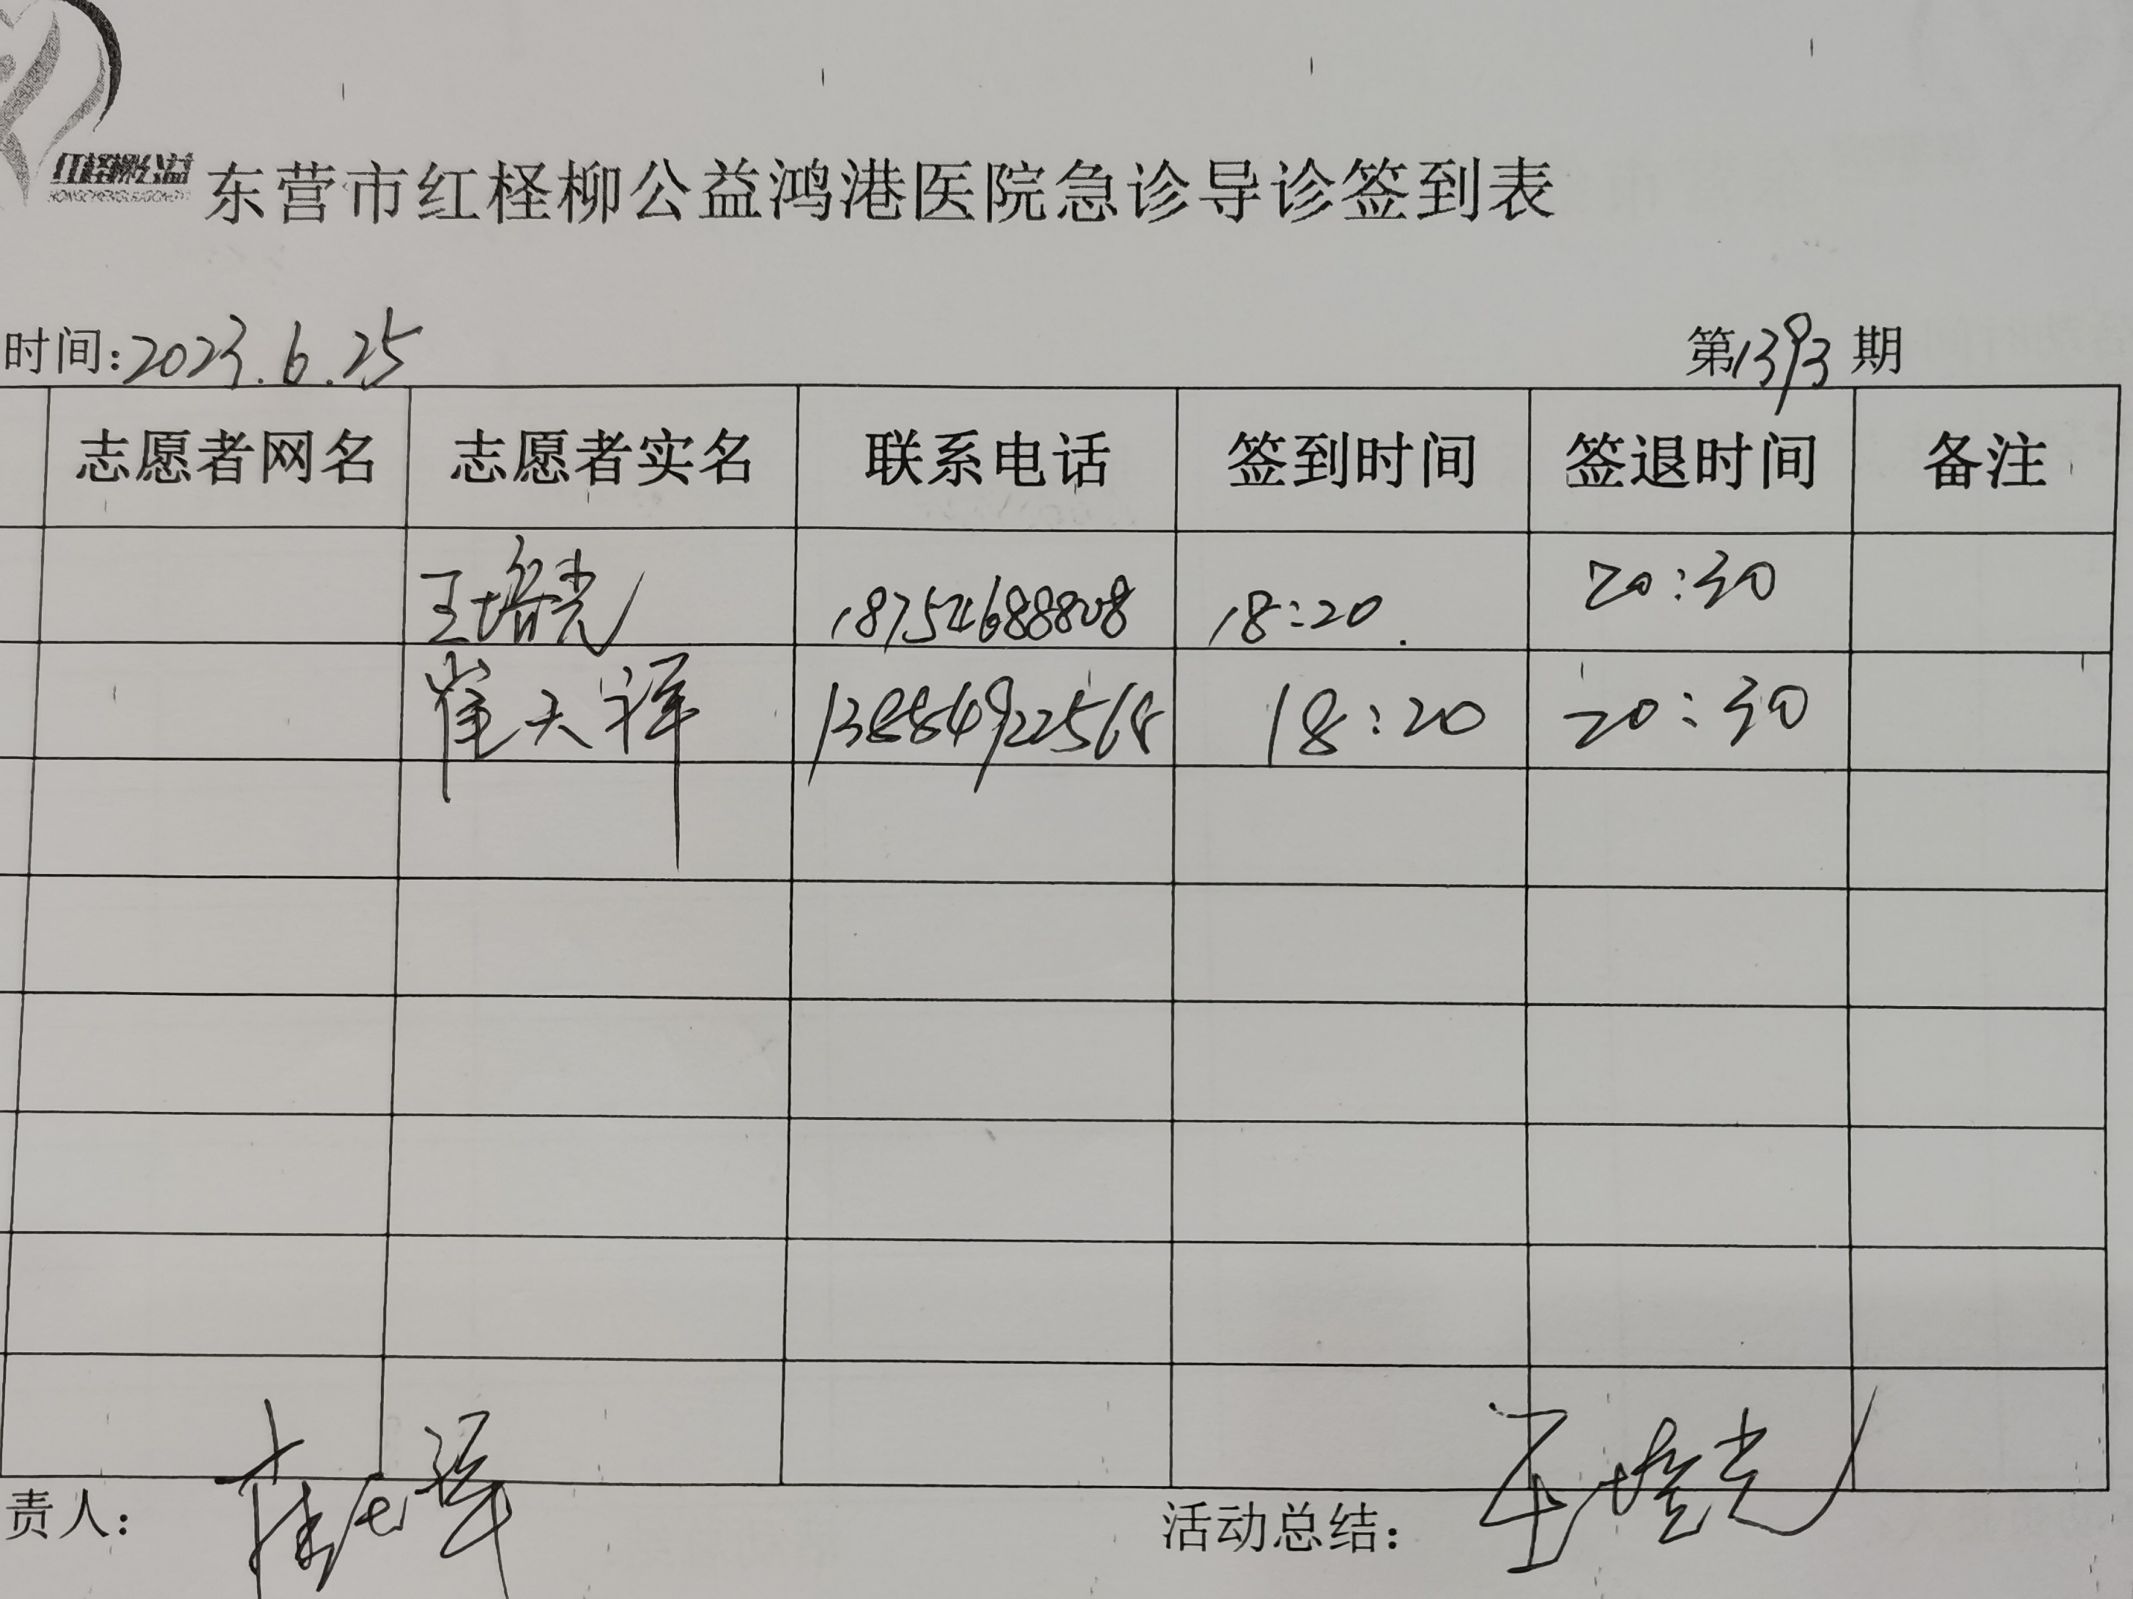 红柽柳公益
东营市红柽柳公益鸿港医院急诊导诊签到表
时间:2023.6.25 第1393期
志愿者网名 志愿者实名 联系电话 签到时间 签退时间 备注
王培光 18754688808 18:20. 20:30
崔天祥 13854922568 18:20 20:30
责人: 活动总结: 王培光